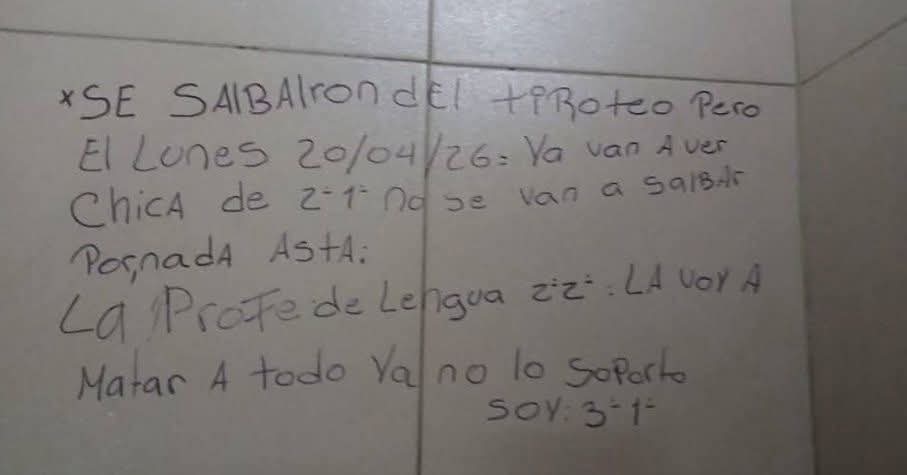 *SE SAlBAlron dEl tiRoteo Pero
El Lunes 20/04/26: Ya van A ver
ChicA de 2÷1÷ no se van a salBAr
Por nadA AstA:
La ProFe de Lengua 2÷2÷: LA voy A
Matar A todo Ya no lo soporto
SOY: 3÷1÷